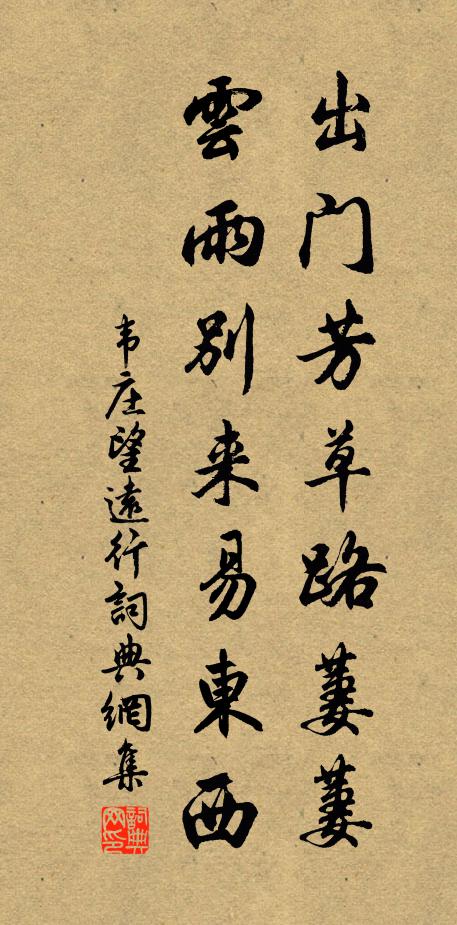 出门芳草路萋萋
雲雨別来易東西
韦庄望遠行詞典網集
詞典
网印